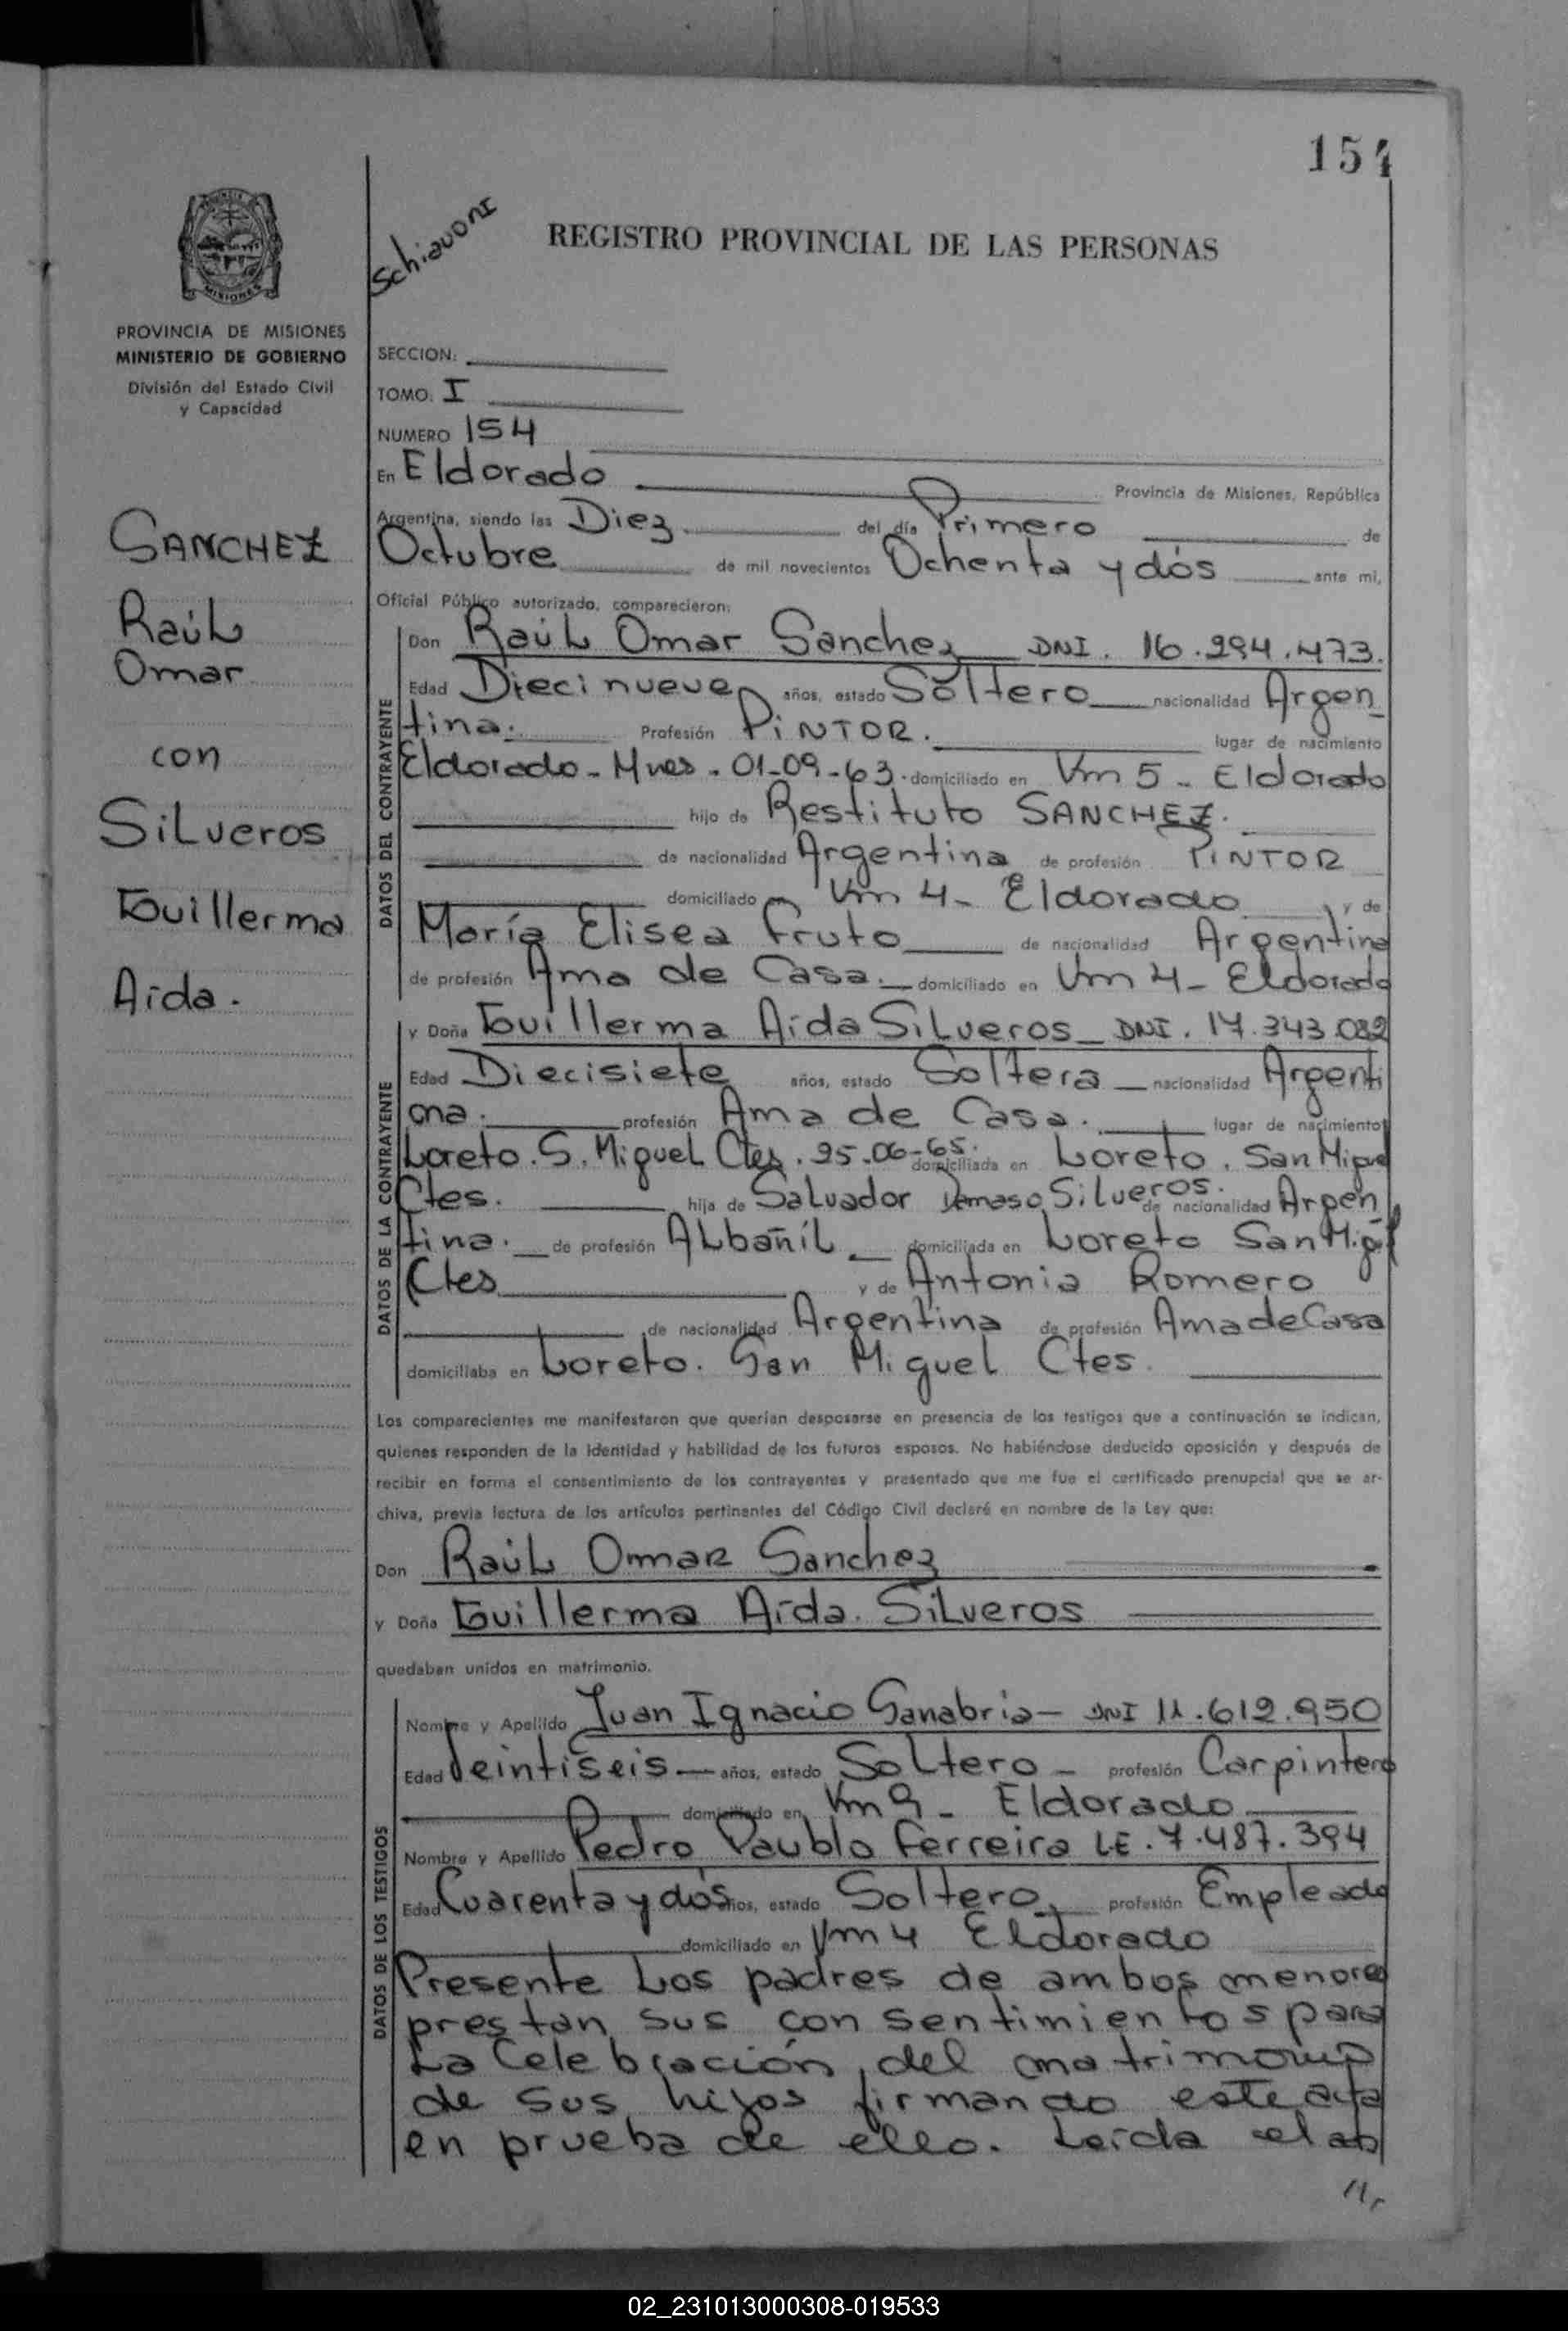 154
Schiavoni
REGISTRO PROVINCIAL DE LAS PERSONAS
MISIONES
PROVINCIA DE MISIONES
MINISTERIO DE GOBIERNO
División del Estado Civil
y Capacidad
SECCION:
TOMO: I
NUMERO 154
En Eldorado Provincia de Misiones, República
Argentina, siendo las Diez del día Primero de
Octubre de mil novecientos Ochenta y dós ante mi,
Oficial Público autorizado, comparecieron:
SANCHEZ
Raúl
Omar
con
Silveros
Guillerma
Aída.
DATOS DEL CONTRAYENTE
Don Raúl Omar Sanchez DNI. 16.294.473.
Edad Diecinueve años, estado Soltero nacionalidad Argen
tina. Profesión PiNTOR. lugar de nacimiento
Eldorado - Mnes. 01-09-63. domiciliado en Km 5 - Eldorado
hijo de Restituto SANCHEZ.
de nacionalidad Argentina de profesión PiNTOR
domiciliado en Km 4 - Eldorado y de
María Elisea Fruto de nacionalidad Argentina
de profesión Ama de Casa. domiciliado en Km 4 - Eldorado
DATOS DE LA CONTRAYENTE
y Doña Guillerma Aída Silveros DNI. 17.343.082
Edad Diecisiete años, estado Soltera nacionalidad Argenti
na. profesión Ama de Casa. lugar de nacimiento
Loreto. S. Miguel Ctes. 25-06-65. domiciliada en Loreto. San Miguel
Ctes. hija de Salvador Damaso Silveros. de nacionalidad Argen
tina. de profesión Albañil domiciliada en Loreto San Miguel
Ctes y de Antonia Romero
de nacionalidad Argentina de profesión Ama de Casa
domiciliaba en Loreto. San Miguel Ctes.
Los comparecientes me manifestaron que querían desposarse en presencia de los testigos que a continuación se indican,
quienes responden de la identidad y habilidad de los futuros esposos. No habiéndose deducido oposición y después de
recibir en forma el consentimiento de los contrayentes y presentado que me fue el certificado prenupcial que se ar-
chiva, previa lectura de los artículos pertinentes del Código Civil declaré en nombre de la Ley que:
Don Raúl Omar Sanchez
y Doña Guillerma Aída. Silveros
quedaban unidos en matrimonio.
DATOS DE LOS TESTIGOS
Nombre y Apellido Juan Ignacio Sanabria - DNI 11.612.950
Edad Veintiseis años, estado Soltero - profesión Carpintero
domiciliado en Km 9 - Eldorado
Nombre y Apellido Pedro Paublo Ferreira L.E. 7.487.394
Edad Cuarenta y dós años, estado Soltero profesión Empleado
domiciliado en Km 4 Eldorado
Presente Los padres de ambos menores
prestan sus consentimientos para
La Celebración del matrimonio
de sus hijos firmando este acta
en prueba de ello. Leída el
02_231013000308-019533